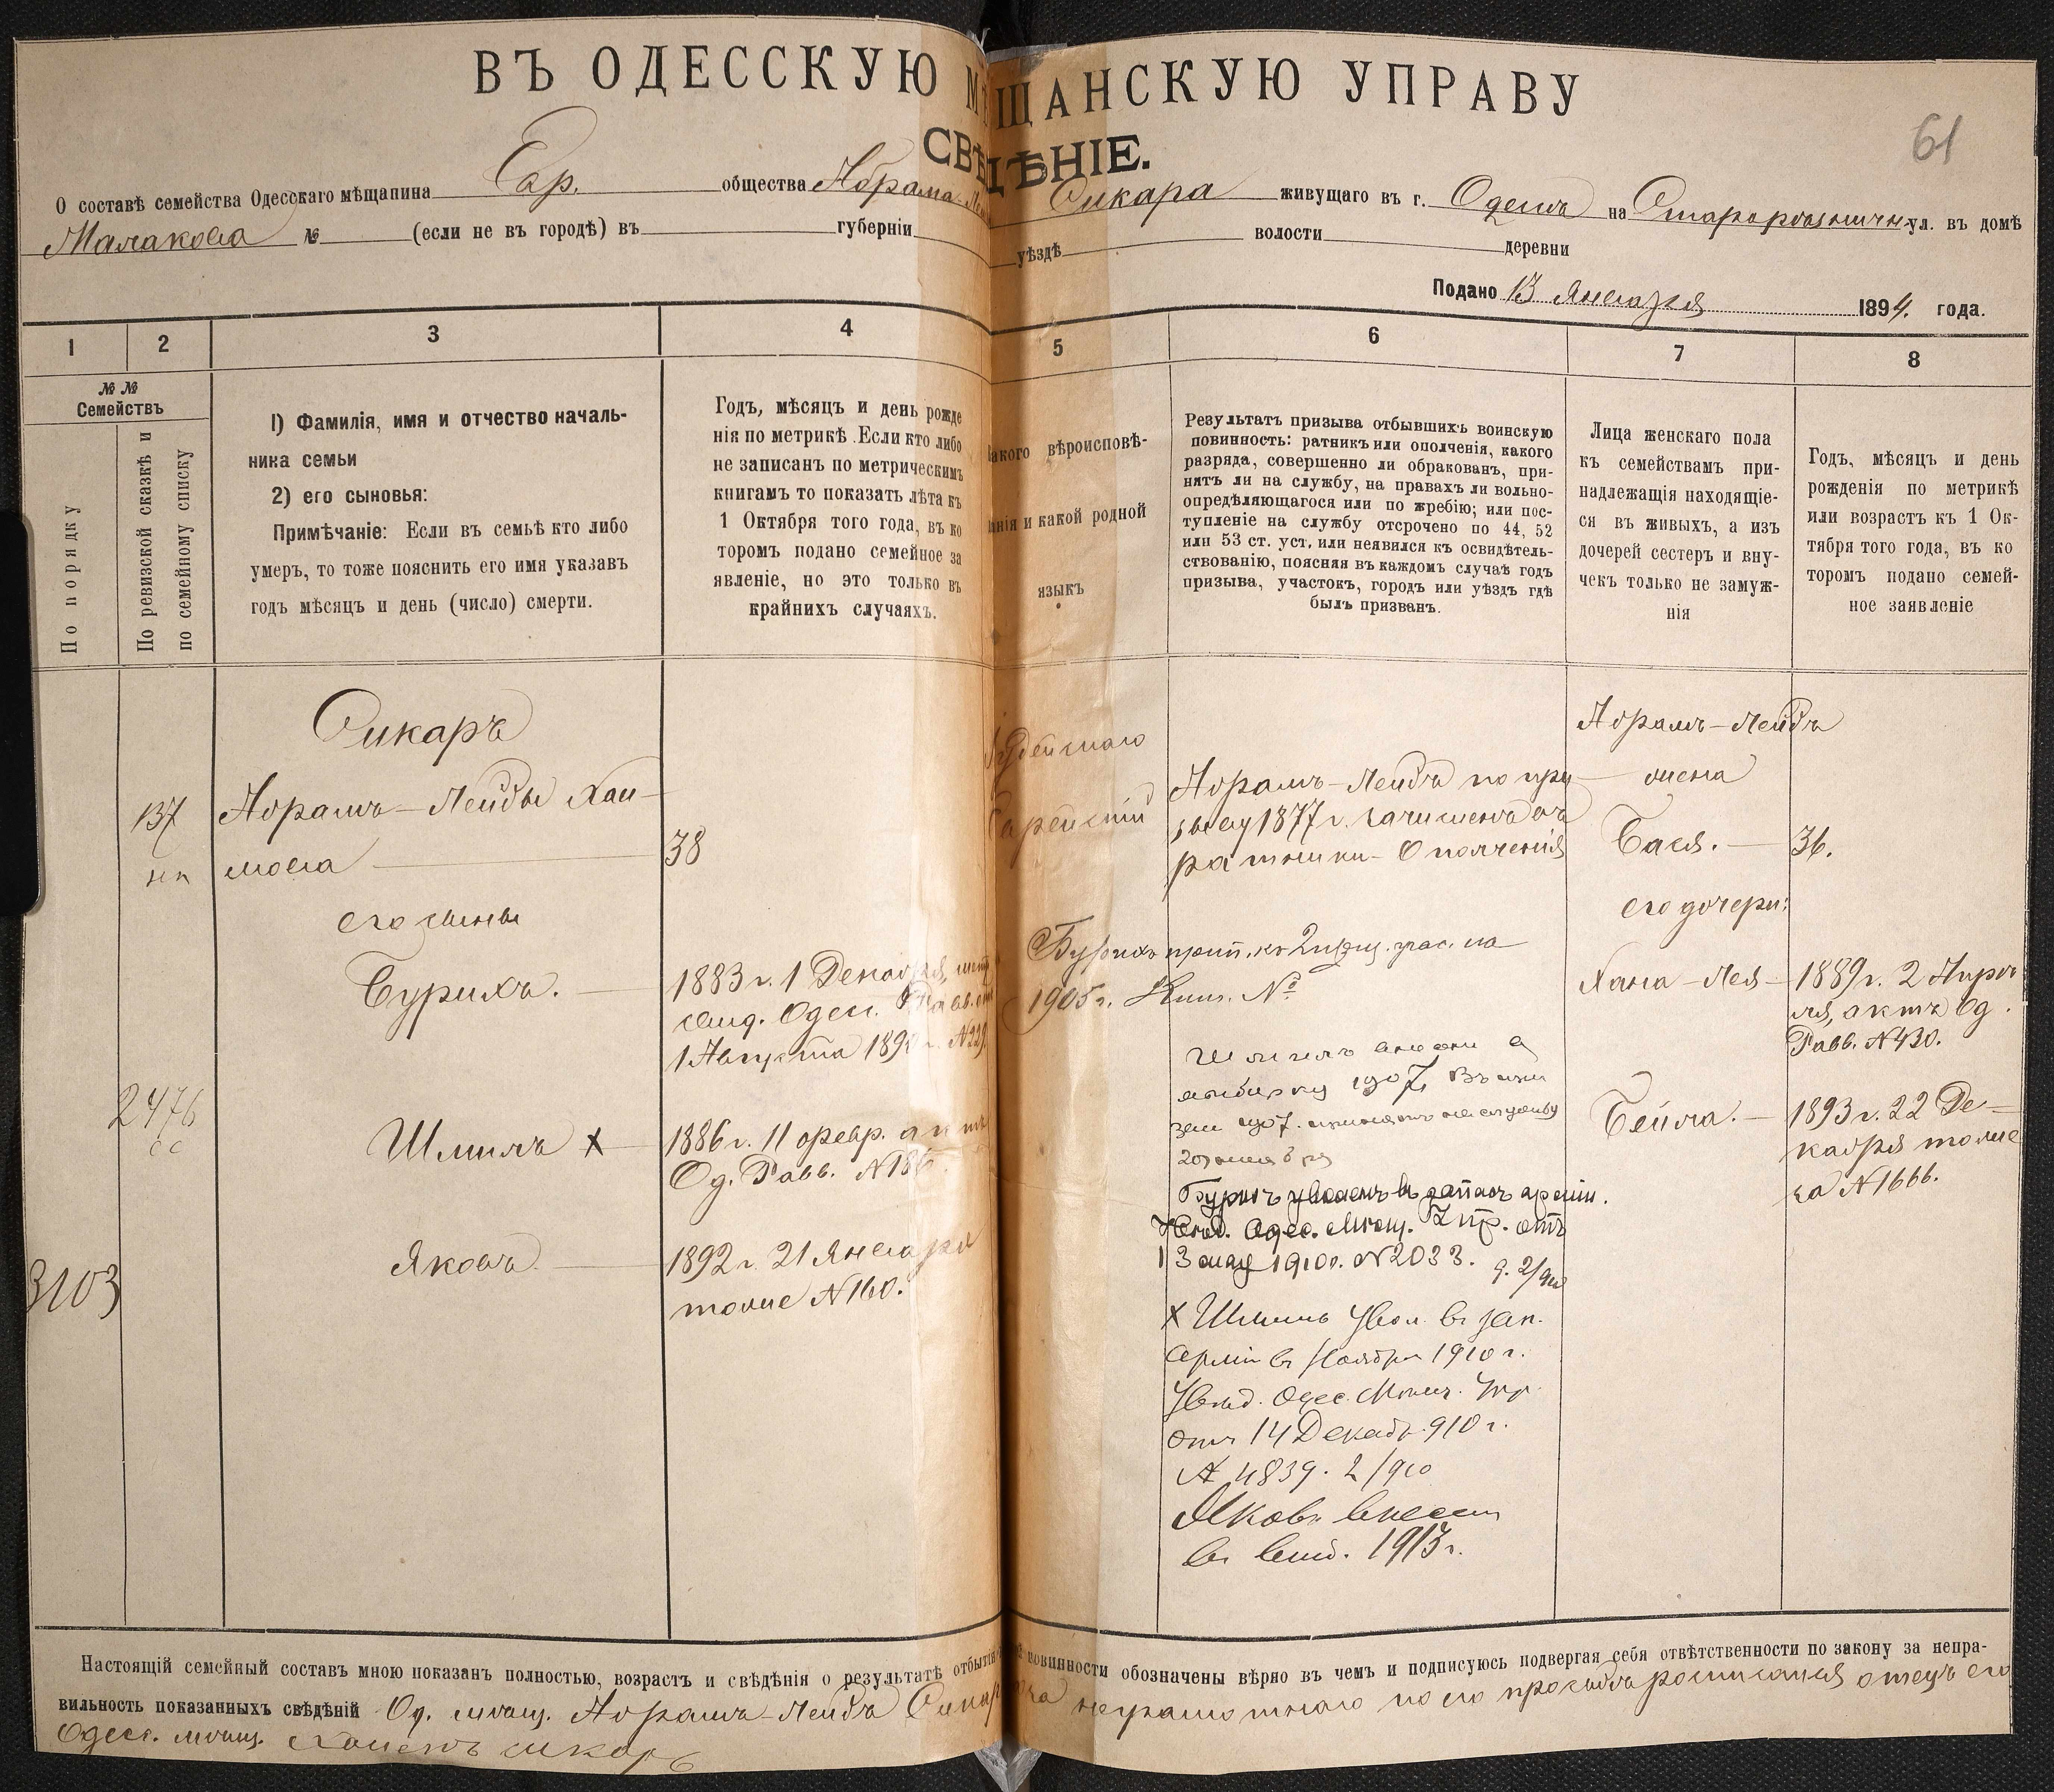 ВЪ ОДЕССКУЮ МѢЩАНСКУЮ УПРАВУ
СВѢДѢНІЕ.
61
О составѣ семейства Одесскаго мѣщанина Евр. общества Абрама-Лей Сикара живущаго въ г. Одессѣ на Старорѣзничн. ул. въ домѣ
Малакова № (если не въ городѣ) въ губерніи уѣздѣ волости деревни
Подано 13 Января 1894 года.
1 2 3 4 5 6 7 8
№ №
Семействъ
По порядку
По ревизской сказкѣ и
по семейному списку
1) Фамилія, имя и отчество началь-
ника семьи
2) его сыновья:
Примѣчаніе: Если въ семьѣ кто либо
умеръ, то тоже пояснить его имя указавъ
годъ мѣсяцъ и день (число) смерти.
Годъ, мѣсяцъ и день рожде
нія по метрикѣ. Если кто либо
не записанъ по метрическимъ
книгамъ то показать лѣта къ
1 Октября того года, въ ко
торомъ подано семейное за
явленіе, но это только въ
крайнихъ случаяхъ.
Какого вѣроисповѣ-
данія и какой родной
языкъ
Результатъ призыва отбывшихъ воинскую
повинность: ратникъ или ополченія, какого
разряда, совершенно ли обракованъ, при-
нятъ ли на службу, на правахъ ли вольно-
опредѣляющагося или по жребію; или пос-
тупленіе на службу отсрочено по 44, 52
или 53 ст. уст. или неявился къ освидѣтель-
ствованію, поясняя въ каждомъ случаѣ годъ
призыва, участокъ, городъ или уѣздъ гдѣ
былъ призванъ.
Лица женскаго пола
къ семействамъ при-
надлежащія находящіе-
ся въ живыхъ, а изъ
дочерей сестеръ и вну-
чекъ только не замуж-
нія
Годъ, мѣсяцъ и день
рожденія по метрикѣ
или возрастъ къ 1 Ок-
тября того года, въ ко
торомъ подано семей-
ное заявленіе
137
нп
2476
сс
3103
Сикаръ
Абрамъ-Лейбъ Хаи-
мова
его сыновья
Бурихъ.
Шмиль х
Яковъ.
38
1883 г. 1 Декабря,
свид. Одес. Равв. отъ
1 Августа 189 г. № 229.
1886 г. 11 февр. актъ
Од. Равв. № 186
1892 г. 21 Января
тоже № 160.
Іудейскаго
Еврейскій
Абрамъ-Лейбъ по при
зыву 1877 г. зачисленъ въ
ратники-Ополченія
Бурихъ прип. къ 2 приз. учас. на
1905 г. Кни. №
Шмиль внесенъ въ
выборку 1907,
1907. принятъ на службу
Бурихъ уволенъ въ запасъ арміи.
Увѣд. Одес. Мѣщ. Упр. отъ
13 мая 1910 г. № 2033. д. 2/910
х Шмиль увол. въ зап.
арміи въ Ноябрѣ 1910 г.
Увѣд. Одес. Мѣщ. Упр.
отъ 14 Декабр. 910 г.
№ 4839. 2/910
Яковъ внесенъ
въ 1913 г.
Абрамъ-Лейбъ
жена
Бася. 36.
его дочери:
Хана-Лея 1889 г. 2 Апрѣ
ля, актъ Од.
Равв. № 430.
Бейла. 1893 г. 22 Де-
кабря тоже
за № 1666.
Настоящій семейный составъ мною показанъ полностью, возрастъ и свѣдѣнія о результатѣ отбытія повинности обозначены вѣрно въ чемъ и подписуюсь подвергая себя отвѣтственности по закону за непра-
вильность показанныхъ свѣдѣній Од. мѣщ. Абрамъ-Лейбъ Сикар неграмотнаго по его просьбѣ росписался отецъ его
Одесс. мѣщ. Хаимъ Сикаръ